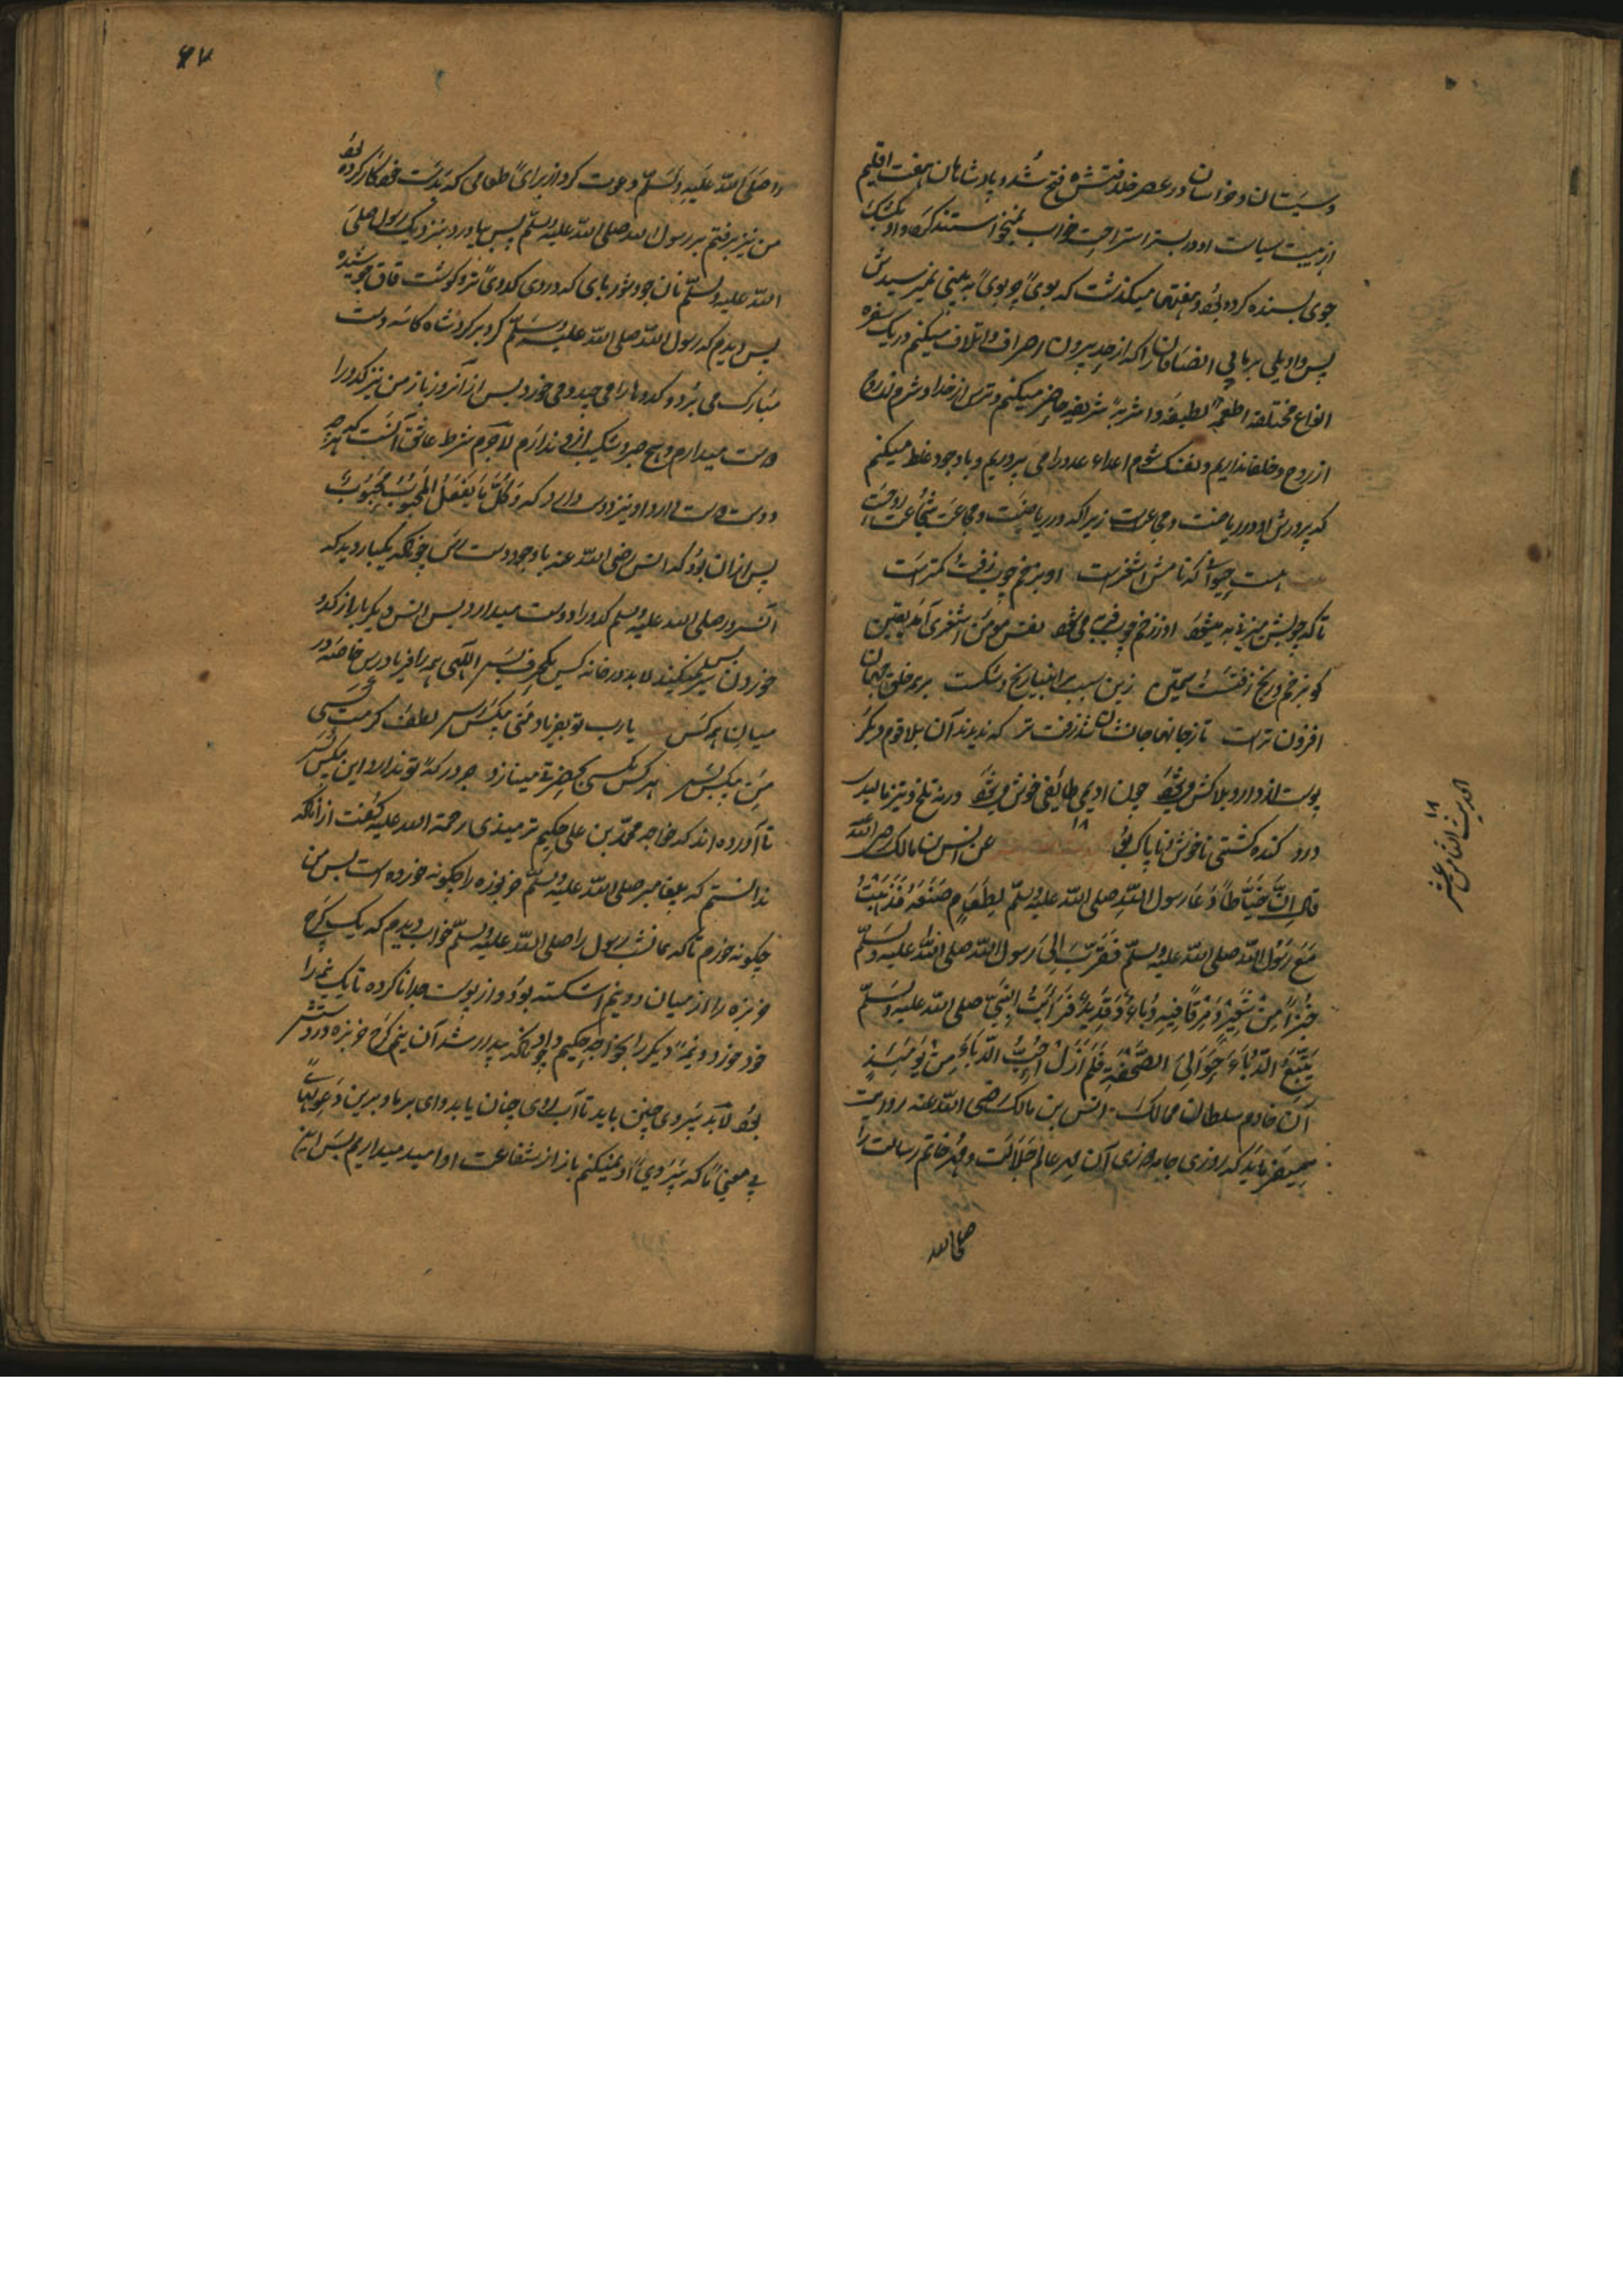 وسیستان و خراسان در عصر خلافتش فتح شد و پادشاهان هفت اقلیم
از هیبت سیاست او در بستر استراحت خواب نمیخواستند کرد و او بکشک
جوی بسنده کرده بود و هفتها میگذشت که بوی چربوی به بینی نمیرسیدش
پس واویلی بر ما بی انصافان را که از حد بیرون اصراف و اتلاف میکنیم و در یک سفره
انواع مختلفه اطعمه لطیفه و اشربه شریفه حاضر میکنیم و ترس از خدا و شرم نداریم
از روح و خلفا نداریم و نفسک شوم اعداء عدو را می پروریم و باوجود غلط میکنیم
که پرورش او در ریاضت و مجاعت زیرا که در ریاضت و مجاعت شجاعت روحست
هست حیوانی که نامش اشغرست او بزخم چوب زفت و لمترست
تا که چوبش میزنی به میشود او ز زخم چوب فربه می شود نفس مومن اشغری آمد یقین
کو بزخم و رنج زفتست و سمین زین سبب بر انبیا رنج و شکست بر همه خلق جهان
افزون ترست تا ز جانها جانشان شد زفت تر که ندیدند آن بلا قوم دیگر
پوست از دارو بلاکش میشود چون ادیم طایفی خوش میشود ورنه تلخ و تیز مالیدی
درو گنده گشتی ناخوش و ناپاک بو ۱۸ عن انس بن مالک رضی الله
قال ان خیاطا دعا رسول الله صلی الله علیه وسلم لطعام صنعه فذهبت
مع رسول الله صلی الله علیه وسلم فقرب الی رسول الله صلی الله علیه وسلم
خبزا من شعیر و مرقا فیه دباء و قدید فرأیت النبی صلی الله علیه وسلم
یتتبع الدباء حوالی الصحفة فلم ازل احب الدباء من یومئذ
آن خادم سلطان ممالک انس بن مالک رضی الله عنه روایت
میفرماید که روزی جامه دوزی آن میر عالم جلالت و مهر خاتم رسالت را
صلی الله
الحدیث الثامن عشر
۱۸
۶۷
را صلی الله علیه وسلم دعوت کرد از برای طعامی که بدست خود کار کرده بود
من نیز برفتم بر رسول الله صلی الله علیه وسلم پس بیاورد بنزدیک رسول صلی
الله علیه وسلم نان جو و شوربای که در وی کدوی تر و گوشت قاق جوشیده
پس دیدم که رسول الله صلی الله علیه وسلم گرد بر گرد شاه کاسه دست
مبارک می برد و کدوها را می چید و می خورد پس از آن روز باز من نیز کدو را
دوست میدارم و هیچ صبر و شکیب ازو ندارم لاجرم شرط عاشق آنست که هرچه
دوست دوست دارد او نیز دوست دارد که و کل ما یفعل المحبوب محبوب
پس از ان بود که انس رضی الله عنه باوجود دست رس چونکه یکبار دید که
آن سرور صلی الله علیه وسلم کدو را دوست میدارد پس انس دیگر بار از کدو
خوردن سیر نمیکنید لابد در خانه کس یکحرف بس الهی همه را فریادرس خاصه در
میان همه کس یارب تو بفریاد منی بیکس رس لطف و کرمت بسی
من بیکس بس هر کس بکسی حضرتی مینازد جز درگه تو ندارد این بیکس کس
تا آورده اند که خواجه محمد بن علی حکیم ترمیذی رحمة الله علیه گفت از آنکه
ندانستم که پیغامبر صلی الله علیه وسلم خربوزه را چگونه خورده است پس من
چگونه خورم تا که شب رسول را صلی الله علیه وسلم خواب دیدم که یک کرچ
خربزه را از میان دو نیم اشکسته بود و از پوست جدا ناکرده تا یک نیمه را
خود خورد و نیمه دیگر را بخواجه حکیم داد چونکه بیدار شد آن نیم کرچ خربزه در دستش
بود لابد پیروی چنین باید تا آب روی چنان یابد وای بر ما و برین دعویهای
بی معنی ما که پیروی او نمیکنیم باز از شفاعت او امید میداریم پس این